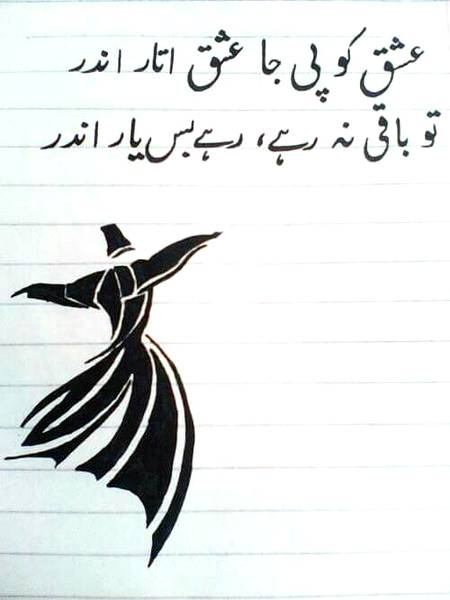 عشق کو پی جا عشق اتار اندر
تو باقی نہ رہے، رہے بس یار اندر